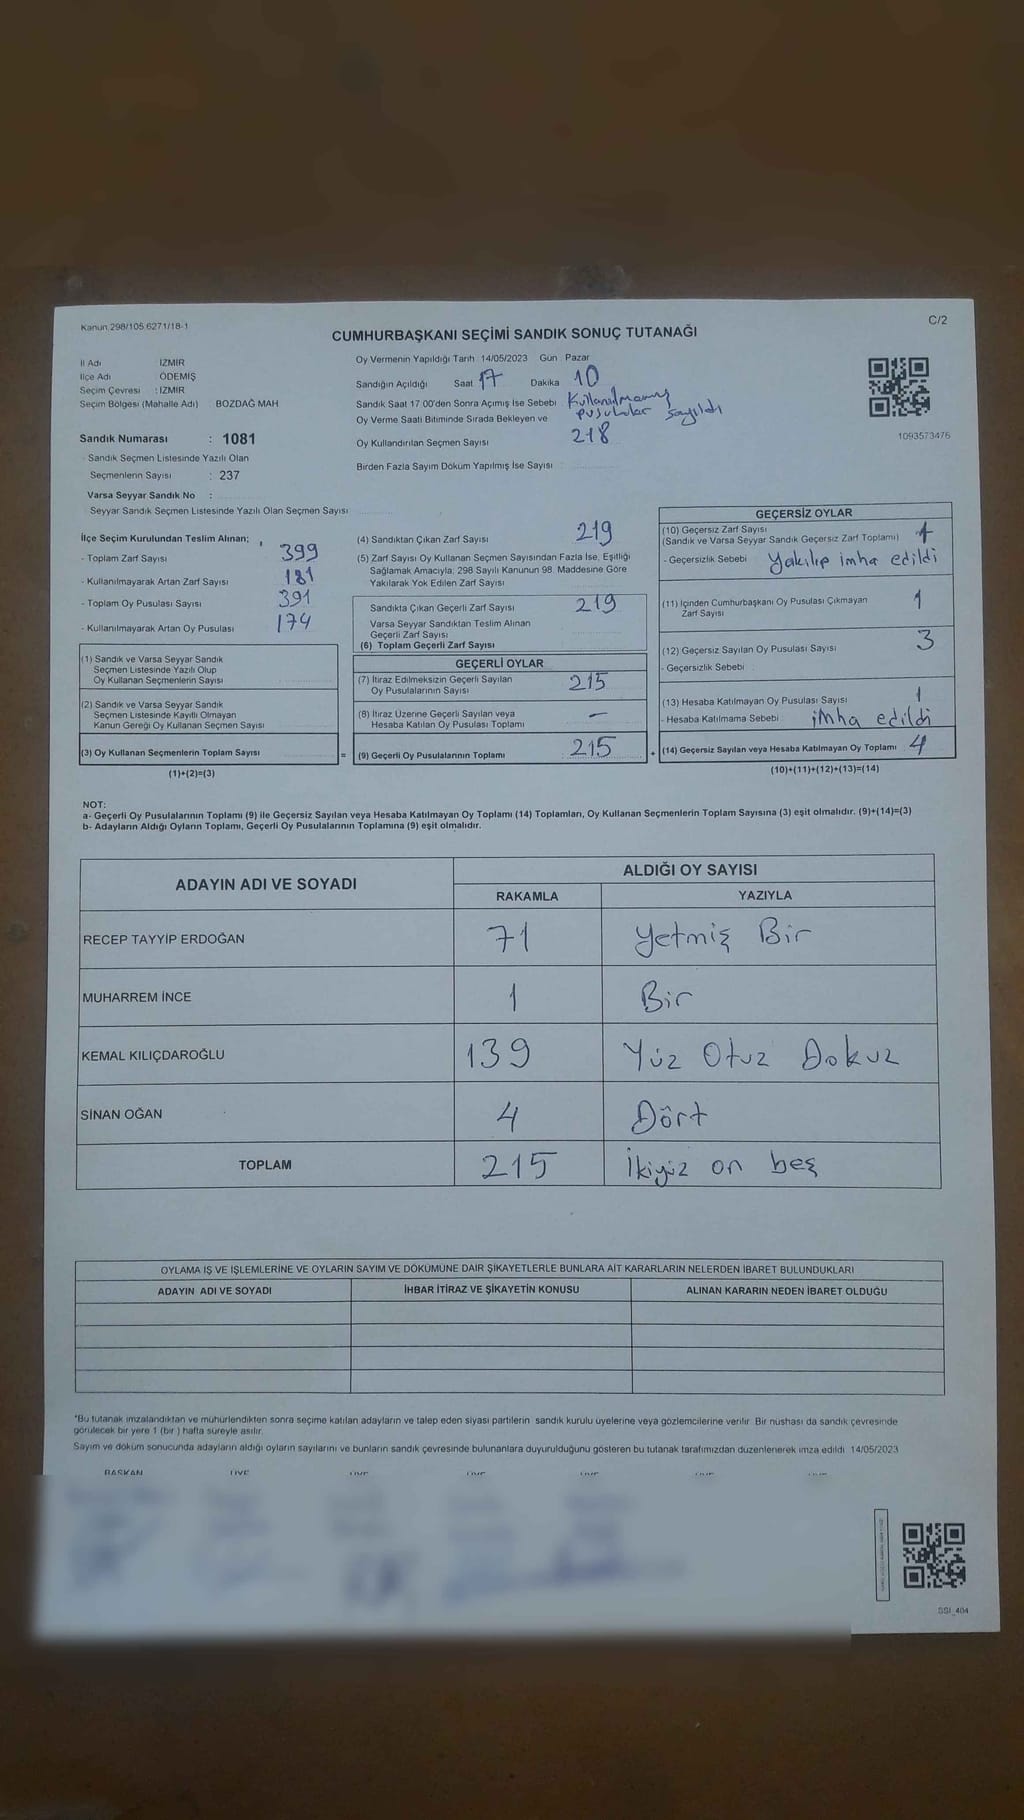 Kanun 298/105 6271/18-1
C/2
CUMHURBAŞKANI SEÇİMİ SANDIK SONUÇ TUTANAĞI
İl Adı İZMİR
İlçe Adı ÖDEMİŞ
Seçim Çevresi : İZMİR
Seçim Bölgesi (Mahalle Adı) BOZDAĞ MAH
Sandık Numarası : 1081
Sandık Seçmen Listesinde Yazılı Olan
Seçmenlerin Sayısı : 237
Varsa Seyyar Sandık No :
Seyyar Sandık Seçmen Listesinde Yazılı Olan Seçmen Sayısı
Oy Vermenin Yapıldığı Tarih 14/05/2023 Gün Pazar
Sandığın Açıldığı Saat 17 Dakika 10
Sandık Saat 17 00'den Sonra Açımış İse Sebebi Kullanılmamış
pusulalar sayıldı
Oy Verme Saati Bitiminde Sırada Bekleyen ve
Oy Kullandırılan Seçmen Sayısı 218
Birden Fazla Sayım Döküm Yapılmış İse Sayısı
1093573476
İlçe Seçim Kurulundan Teslim Alınan;
- Toplam Zarf Sayısı 399
- Kullanılmayarak Artan Zarf Sayısı 181
- Toplam Oy Pusulası Sayısı 391
- Kullanılmayarak Artan Oy Pusulası 174
(1) Sandık ve Varsa Seyyar Sandık
Seçmen Listesinde Yazılı Olup
Oy Kullanan Seçmenlerin Sayısı
(2) Sandık ve Varsa Seyyar Sandık
Seçmen Listesinde Kayıtlı Olmayan
Kanun Gereği Oy Kullanan Seçmen Sayısı
(3) Oy Kullanan Seçmenlerin Toplam Sayısı =
(1)+(2)=(3)
(4) Sandıktan Çıkan Zarf Sayısı 219
(5) Zarf Sayısı Oy Kullanan Seçmen Sayısından Fazla İse, Eşitliği
Sağlamak Amacıyla, 298 Sayılı Kanunun 98. Maddesine Göre
Yakılarak Yok Edilen Zarf Sayısı
Sandıkta Çıkan Geçerli Zarf Sayısı 219
Varsa Seyyar Sandıktan Teslim Alınan
Geçerli Zarf Sayısı
(6) Toplam Geçerli Zarf Sayısı
GEÇERLİ OYLAR
(7) İtiraz Edilmeksizin Geçerli Sayılan
Oy Pusulalarının Sayısı 215
(8) İtiraz Üzerine Geçerli Sayılan veya
Hesaba Katılan Oy Pusulası Toplamı —
(9) Geçerli Oy Pusulalarının Toplamı 215 +
GEÇERSİZ OYLAR
(10) Geçersiz Zarf Sayısı
(Sandık ve Varsa Seyyar Sandık Geçersiz Zarf Toplamı)
- Geçersizlik Sebebi Yakılıp imha edildi
(11) İçinden Cumhurbaşkanı Oy Pusulası Çıkmayan
Zarf Sayısı 1
(12) Geçersiz Sayılan Oy Pusulası Sayısı 3
- Geçersizlik Sebebi
(13) Hesaba Katılmayan Oy Pusulası Sayısı 1
- Hesaba Katılmama Sebebi imha edildi
(14) Geçersiz Sayılan veya Hesaba Katılmayan Oy Toplamı 4
(10)+(11)+(12)+(13)=(14)
NOT:
a- Geçerli Oy Pusulalarının Toplamı (9) ile Geçersiz Sayılan veya Hesaba Katılmayan Oy Toplamı (14) Toplamları, Oy Kullanan Seçmenlerin Toplam Sayısına (3) eşit olmalıdır. (9)+(14)=(3)
b- Adayların Aldığı Oyların Toplamı, Geçerli Oy Pusulalarının Toplamına (9) eşit olmalıdır.
ADAYIN ADI VE SOYADI ALDIĞI OY SAYISI
RAKAMLA YAZIYLA
RECEP TAYYİP ERDOĞAN 71 Yetmiş Bir
MUHARREM İNCE 1 Bir
KEMAL KILIÇDAROĞLU 139 Yüz Otuz Dokuz
SİNAN OĞAN 4 Dört
TOPLAM 215 İkiyüz on beş
OYLAMA İŞ VE İŞLEMLERİNE VE OYLARIN SAYIM VE DÖKÜMÜNE DAİR ŞİKAYETLERLE BUNLARA AİT KARARLARIN NELERDEN İBARET BULUNDUKLARI
ADAYIN ADI VE SOYADI İHBAR İTİRAZ VE ŞİKAYETİN KONUSU ALINAN KARARIN NEDEN İBARET OLDUĞU
*Bu tutanak imzalandıktan ve mühürlendikten sonra seçime katılan adayların ve talep eden siyasi partilerin sandık kurulu üyelerine veya gözlemcilerine verilir. Bir nüshası da sandık çevresinde
görülecek bir yere 1 (bir ) hafta süreyle asılır.
Sayım ve döküm sonucunda adayların aldığı oyların sayılarını ve bunların sandık çevresinde bulunanlara duyurulduğunu gösteren bu tutanak tarafımızdan düzenlenerek imza edildi 14/05/2023
BAŞKAN ÜYE ÜYE ÜYE ÜYE ÜYE ÜYE
SSI_404